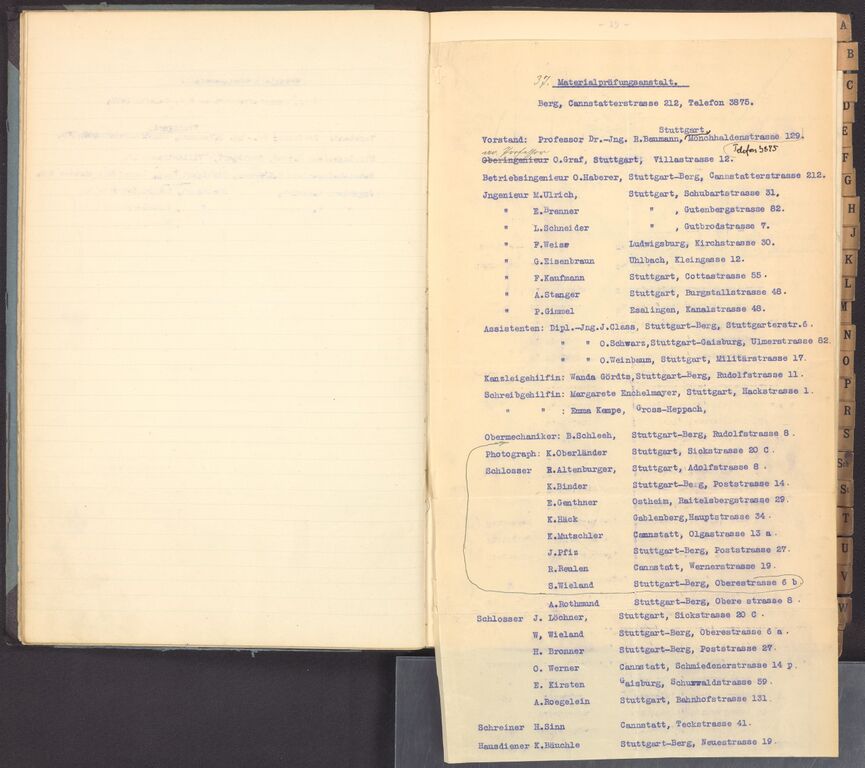 - 19 -
37. Materialprüfungsanstalt.
Berg, Cannstatterstrasse 212, Telefon 3875.
Stuttgart,
Vorstand: Professor Dr.-Jng. R.Baumann, Mönchhaldenstrasse 129.
Telefon 3875
Professor
Oberingenieur O.Graf, Stuttgart, Villastrasse 12.
Betriebsingenieur O.Haberer, Stuttgart-Berg, Cannstatterstrasse 212.
Jngenieur M.Ulrich, Stuttgart, Schubartstrasse 31.
" E.Brenner " , Gutenbergstrasse 82.
" L.Schneider " , Gutbrodstrasse 7.
" F.Weise Ludwigsburg, Kirchstrasse 30.
" G.Eisenbraun Uhlbach, Kleingasse 12.
" F.Kaufmann Stuttgart, Cottastrasse 55.
" A.Stanger Stuttgart, Burgstallstrasse 48.
" P.Gimmel Esslingen, Kanalstrasse 48.
Assistenten: Dipl.-Jng.J.Class, Stuttgart-Berg, Stuttgarterstr.6.
" " O.Schwarz,Stuttgart-Gaisburg, Ulmerstrasse 82
" " O.Weinbaum, Stuttgart, Militärstrasse 17.
Kanzleigehilfin: Wanda Gördts,Stuttgart-Berg, Rudolfstrasse 11.
Schreibgehilfin: Margarete Enchelmayer, Stuttgart, Hackstrasse 1.
" " : Emma Kempe, Gross-Heppach,
Obermechaniker: B.Schleeh, Stuttgart-Berg, Rudolfstrasse 8.
Photograph: K.Oberländer Stuttgart, Sickstrasse 20 C.
Schlosser R.Altenburger, Stuttgart, Adolfstrasse 8.
K.Binder Stuttgart-Berg, Poststrasse 14.
E.Genthner Ostheim, Raitelsbergstrasse 29.
K.Häck Gablenberg,Hauptstrasse 34.
K.Mutschler Cannstatt, Olgastrasse 13 a.
J.Pfiz Stuttgart-Berg, Poststrasse 27.
R.Reulen Cannstatt, Wernerstrasse 19.
S.Wieland Stuttgart-Berg, Oberestrasse 6 b
A.Rothmund Stuttgart-Berg, Obere strasse 8.
Schlosser J. Löchner, Stuttgart, Sickstrasse 20 C.
W, Wieland Stuttgart-Berg, Oberestrasse 6 a.
H. Bronner Stuttgart-Berg, Poststrasse 27.
O. Werner Cannstatt, Schmiedenerstrasse 14 p.
E. Kirsten Gaisburg, Schurwaldstrasse 59.
A.Roegelein Stuttgart, Bahnhofstrasse 131.
Schreiner H.Sinn Cannstatt, Teckstrasse 41.
Hausdiener K.Bäuchle Stuttgart-Berg, Neuestrasse 19.
A
B
C
D
E
F
G
H
J
K
L
M
N
O
P
R
S
Sch
St
T
U
V
W